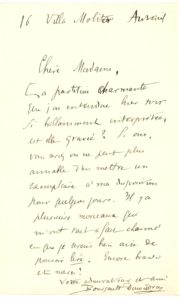 16 Villa Molitor Auteuil
Chère Madame,
La partition charmante
que j'ai entendue hier soir
si brillamment interprétée,
est elle gravée? Si oui,
vous serez on ne peut plus
aimable d'en mettre un
exemplaire à ma disposition
pour quelques jours. Il y a
plusieurs morceaux qui
m'ont tout à fait charmé
et que je serais bien aise de
pouvoir lire. Encore bravo
et merci!
Votre admirateur et ami